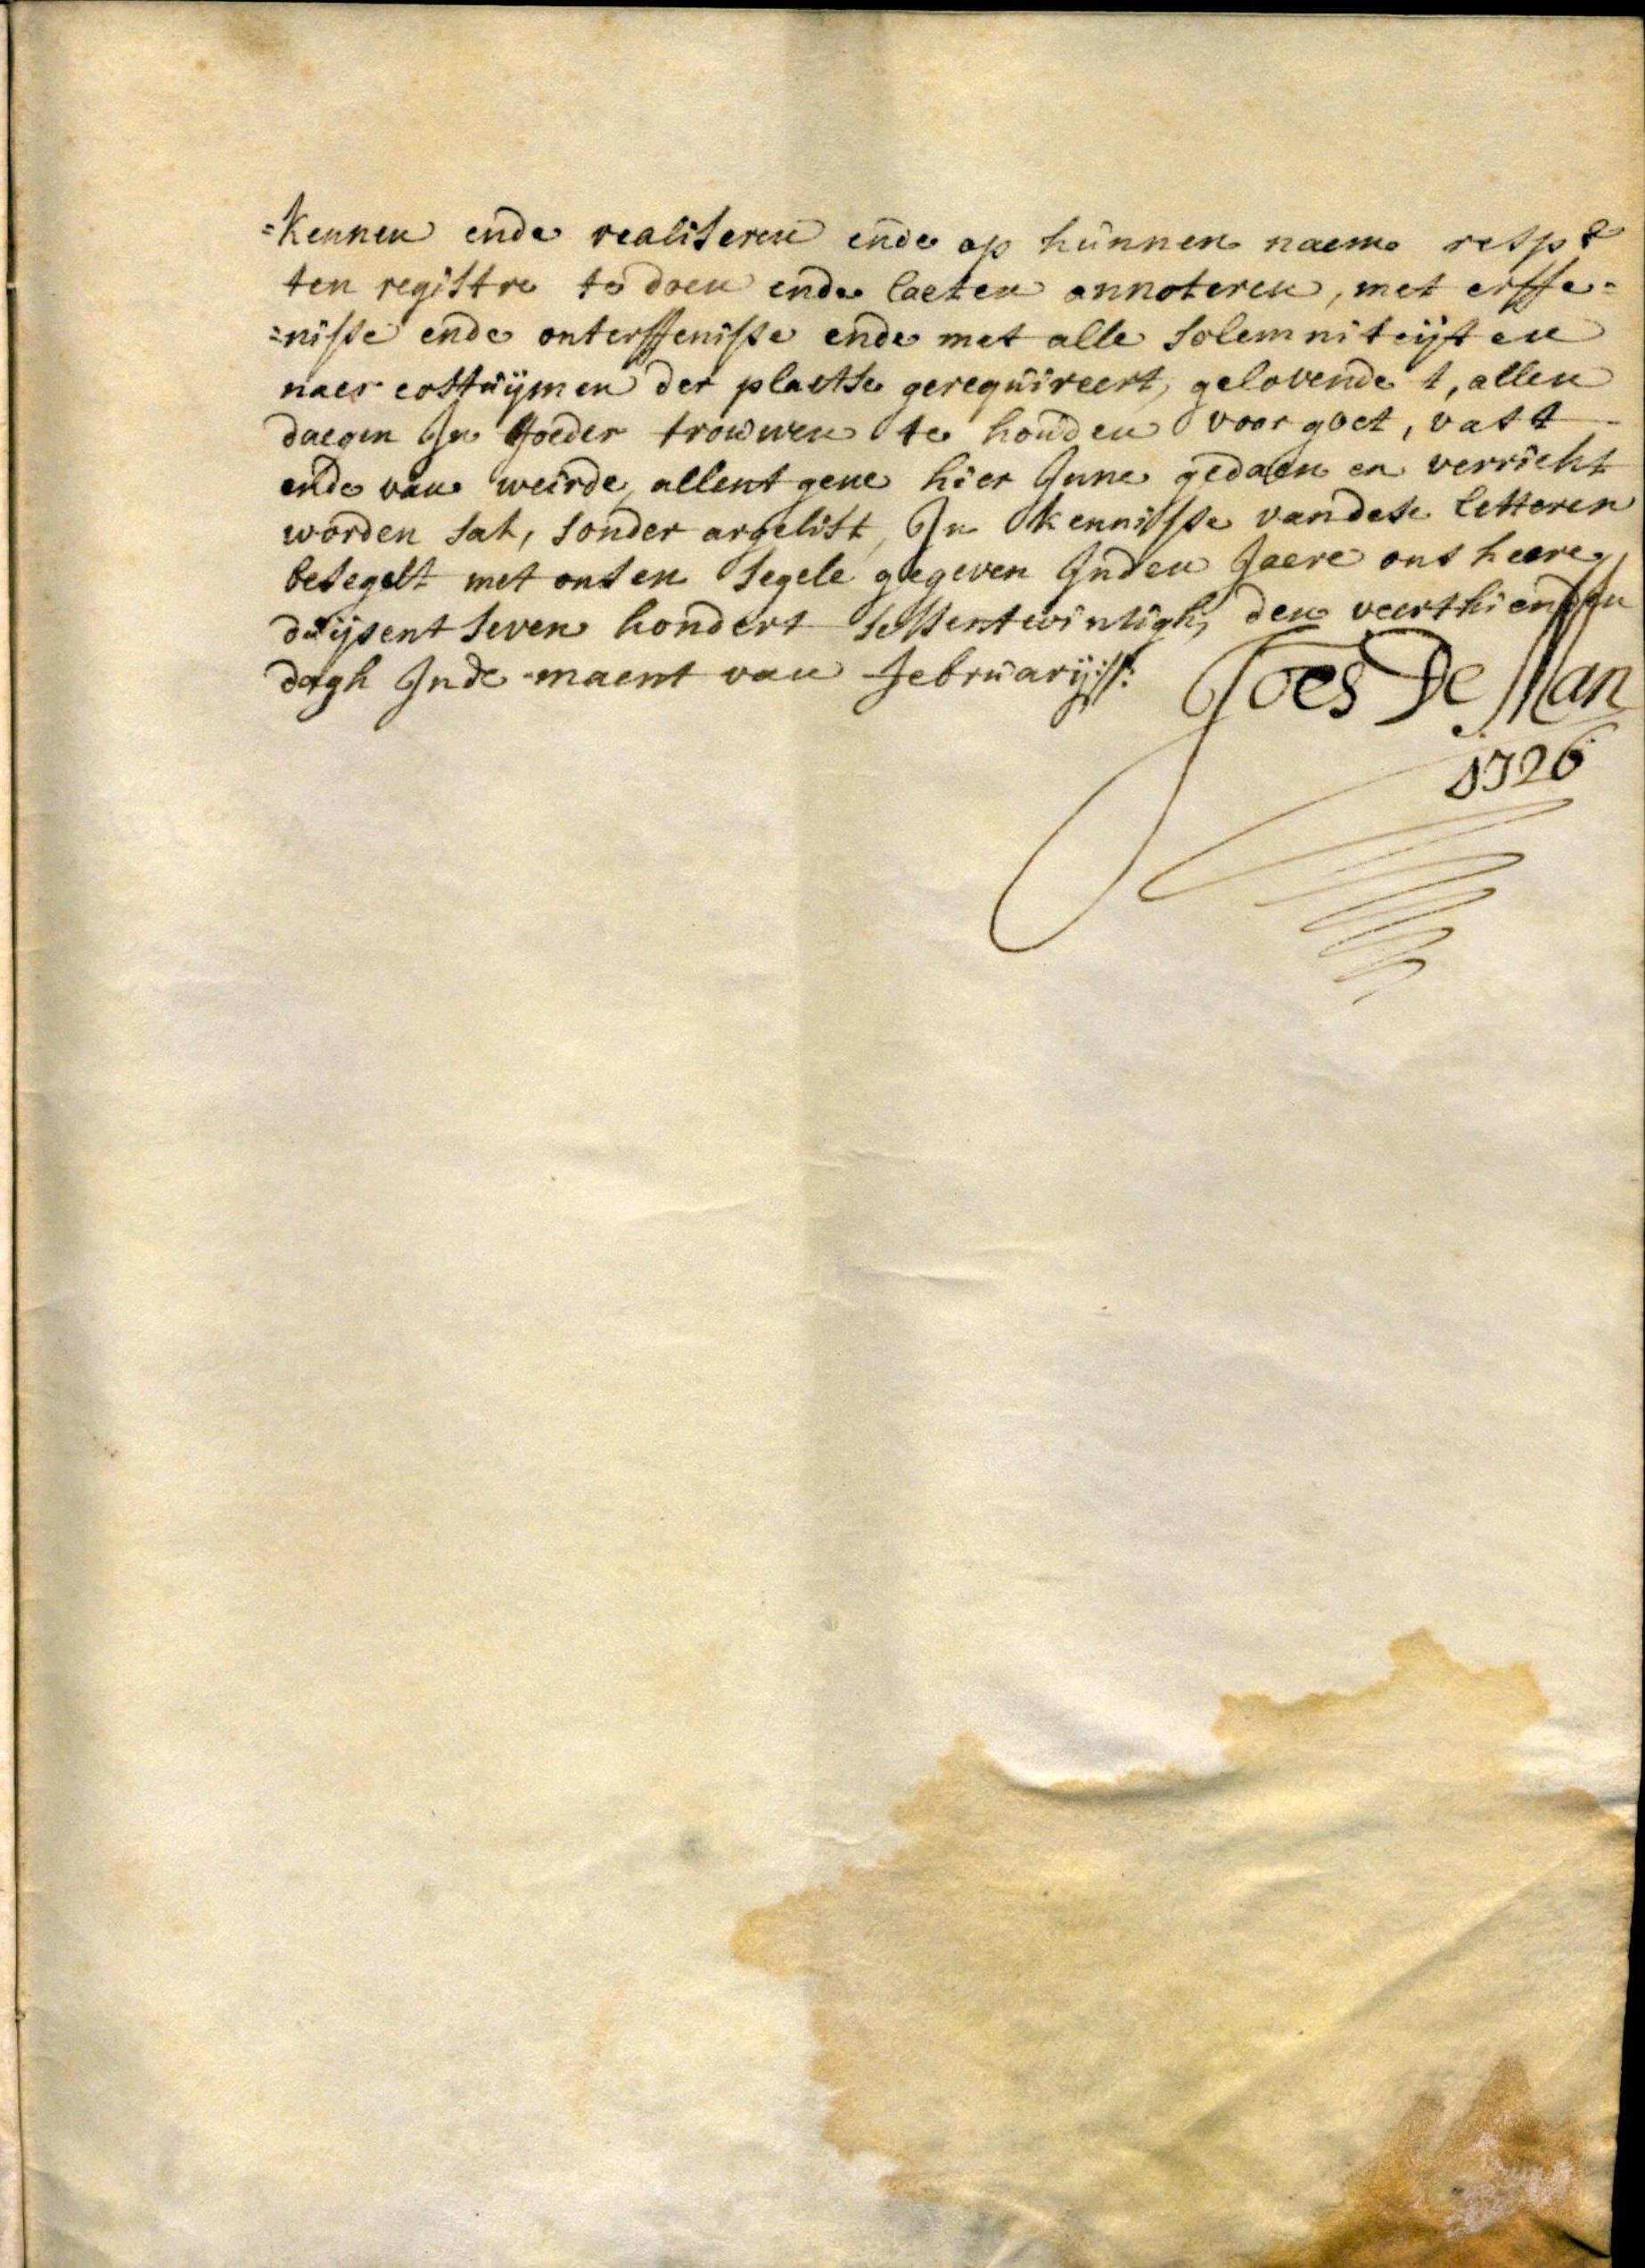 =kennen ende realiseren ende op hunnen naeme resp.e
ten registre te doen ende laeten annoteren, met erffe=
=nisse ende onterffenisse ende met alle solemniteijten
naer costuijmen der plaetse gerequireert, gelovende t, allen
daegen In goeder trouwen te houden voor goet, vast
ende van weirde, allent gene hier Inne gedaen en verricht
worden sal, sonder argelist, In kennisse van dese letteren
besegelt met onsen segele gegeven Inden Jaere ons heere
duijsent seven hondert sessentwintigh, den veerthiensten
dagh Inde maent van februarij://:
Joes De Man
1726